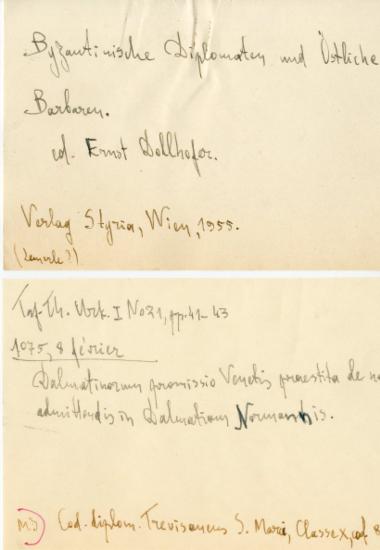 Byzantinische Diplomaten und Östliche
Barbaren.
ed. Ernst Dollhofer.
Verlag Styria, Wien, 1955.
(Lemerle?)
Taf. Th. Urk. I No 21, pp. 41-43
1075, 8 février
Dalmatinorum promissio Venetis praestita de
admittendis in Dalmatiam Normannis.
MS Cod. diplom. Trevisaneus S. Marci, Classe X, cod